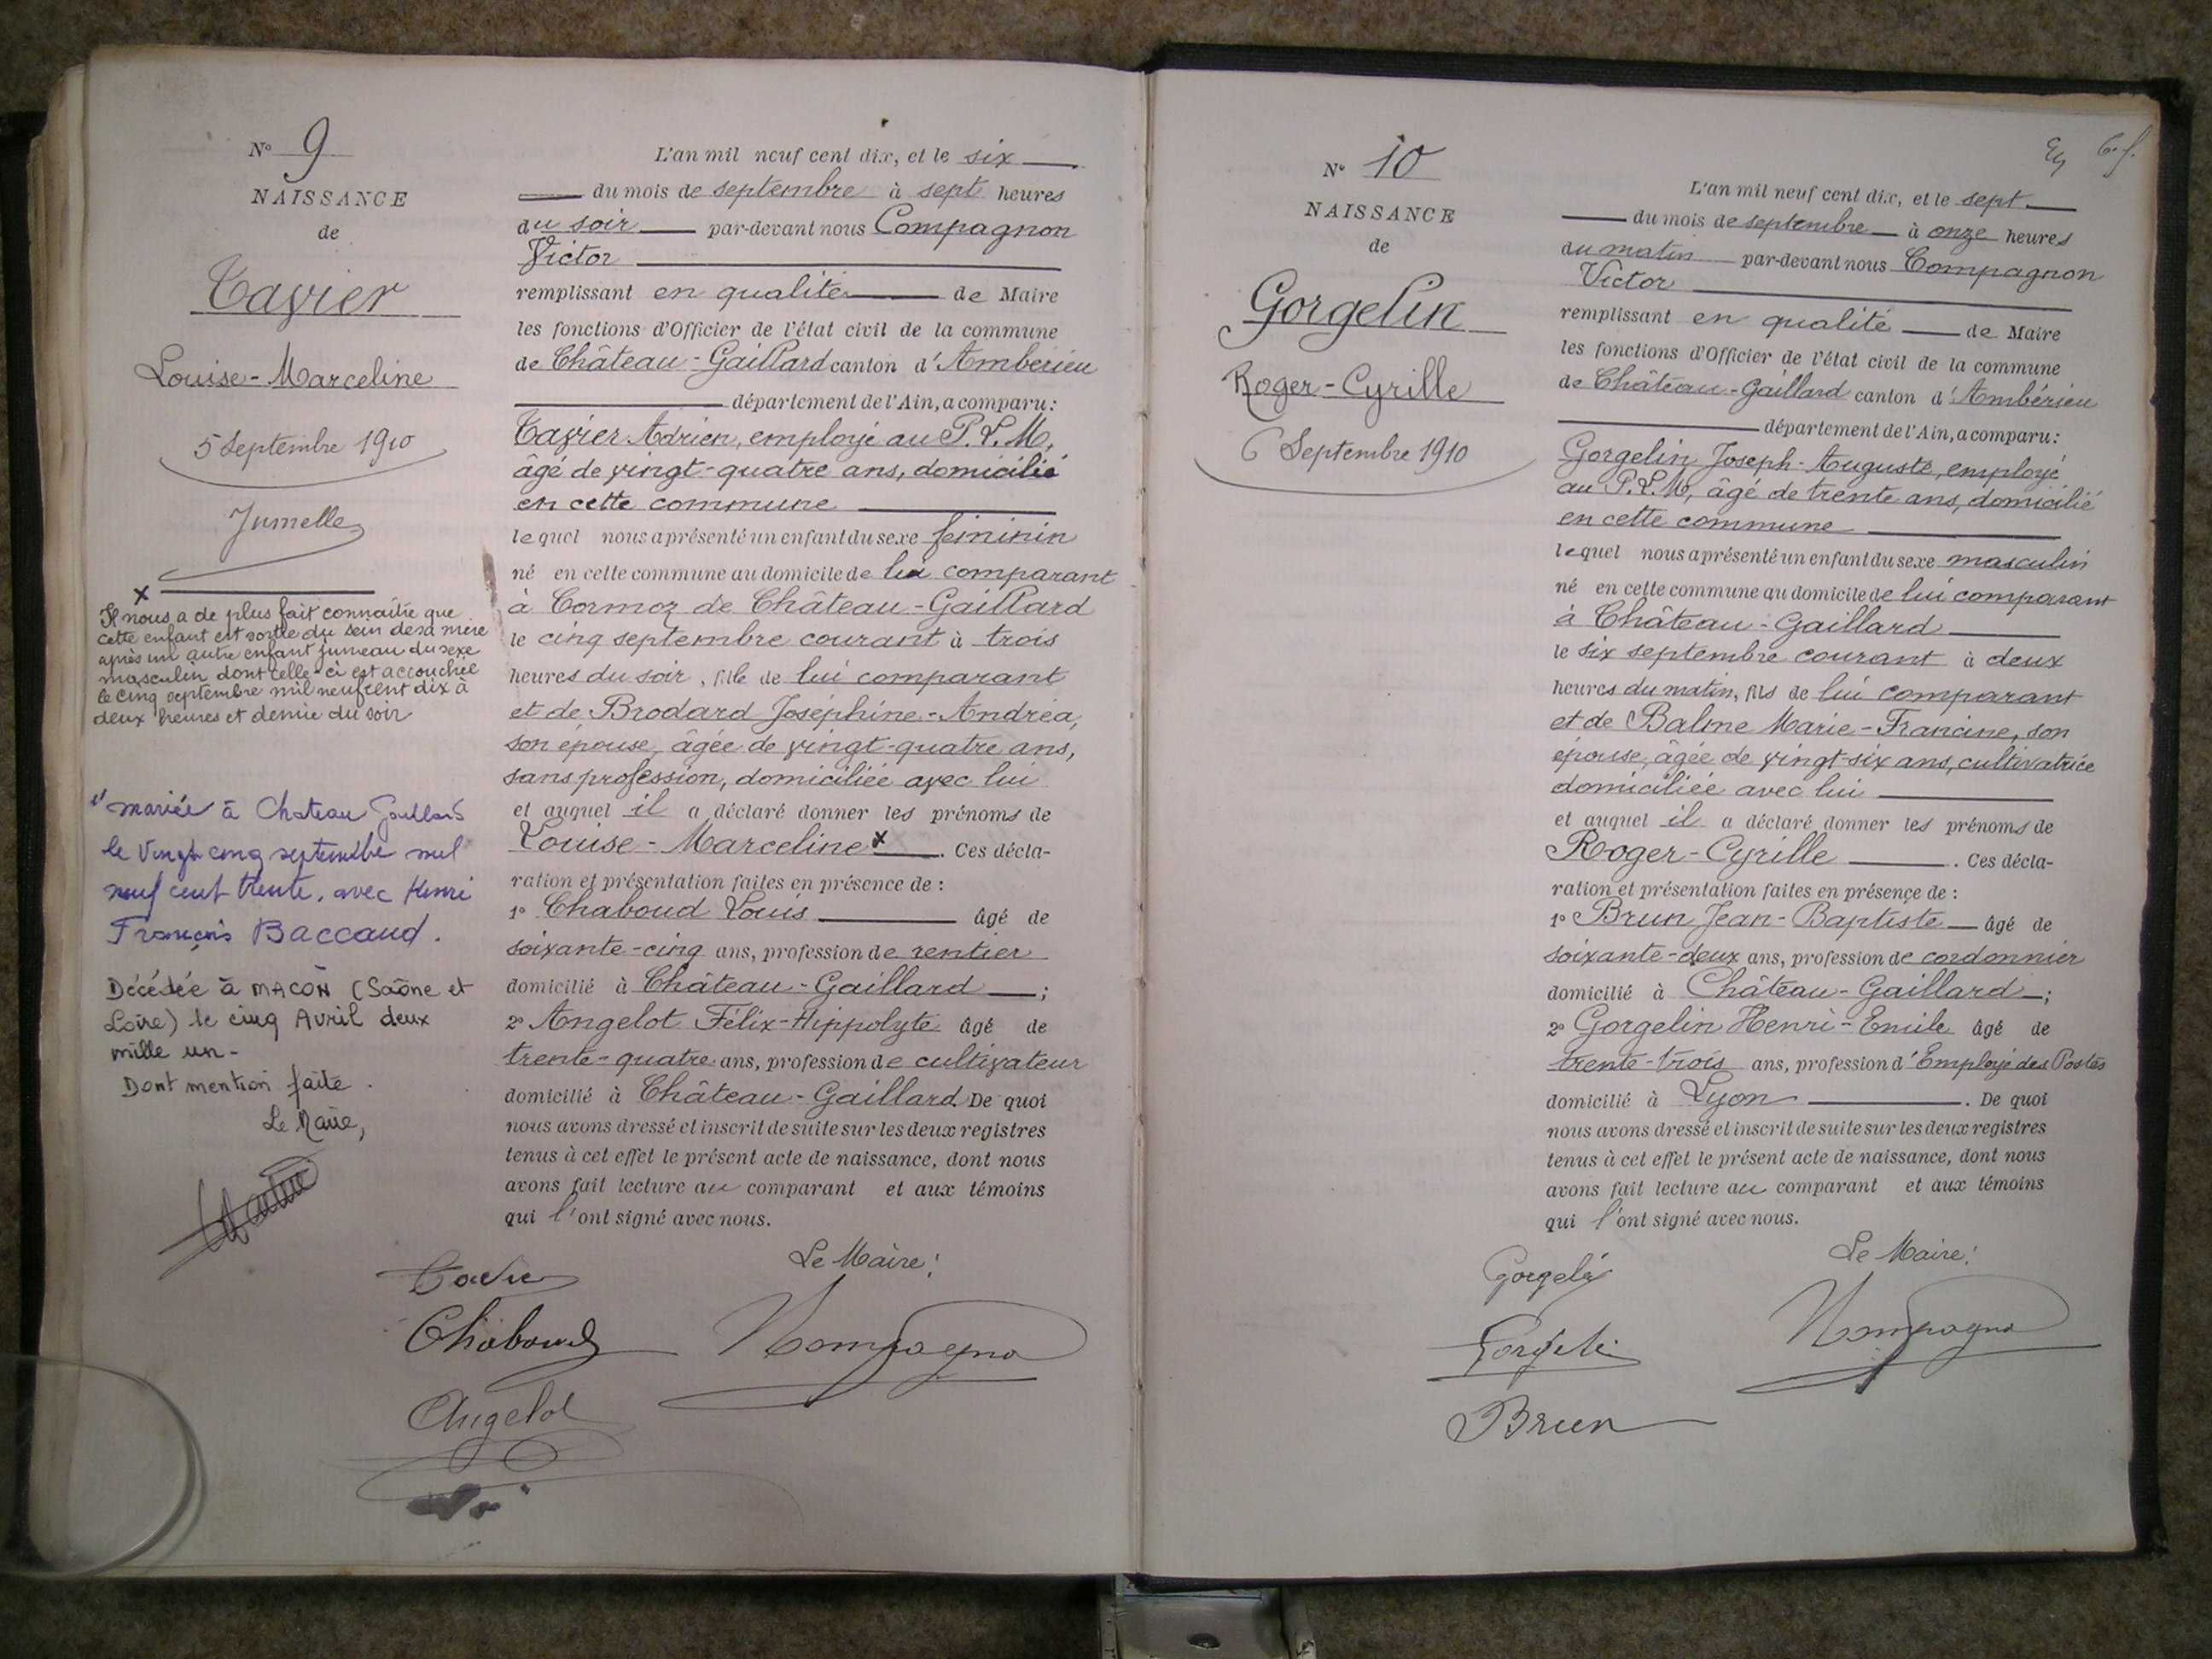 N° 9
NAISSANCE
de
Tavier
Louise-Marceline
5 Septembre 1910
Jumelle
x
Il nous a de plus fait connaître que
cette enfant est sortie du sein de sa mère
après un autre enfant jumeau du sexe
masculin dont celle-ci est accouchée
le cinq septembre mil neuf cent dix à
deux heures et demie du soir
mariée à Chateau Gaillard
le vingt cinq septembre mil
neuf cent trente, avec Henri
François Baccaud.
Décédée à MACON (Saône et
Loire) le cinq Avril deux
mille un-
Dont mention faite.
Le Maire,
L'an mil neuf cent dix, et le six
du mois de septembre à sept heures
du soir par-devant nous Compagnon
Victor
remplissant en qualité de Maire
les fonctions d'Officier de l'état civil de la commune
de Château-Gaillard canton d'Amberieu
département de l'Ain, a comparu:
Tavier Adrien, employé au P.L.M,
âgé de vingt-quatre ans, domicilié
en cette commune
lequel nous a présenté un enfant du sexe féminin
né en cette commune au domicile de lui comparant
à Cormoz de Château-Gaillard
le cinq septembre courant à trois
heures du soir, fille de lui comparant
et de Brodard Joséphine-Andréa,
son épouse, âgée de vingt-quatre ans,
sans profession, domiciliée avec lui
et auquel il a déclaré donner les prénoms de
Louise-Marceline x. Ces décla-
ration et présentation faites en présence de :
1° Chaboud Louis âgé de
soixante-cinq ans, profession de rentier
domicilié à Château-Gaillard ;
2° Angelot Félix-Hippolyte âgé de
trente-quatre ans, profession de cultivateur
domicilié à Château-Gaillard. De quoi
nous avons dressé et inscrit de suite sur les deux registres
tenus à cet effet le présent acte de naissance, dont nous
avons fait lecture au comparant et aux témoins
qui l'ont signé avec nous.
Le Maire:
Tavier
Chaboud
Compagnon
Angelot
N° 10
NAISSANCE
de
Gorgelin
Roger-Cyrille
6 Septembre 1910
L'an mil neuf cent dix, et le sept
du mois de septembre à onze heures
du matin par-devant nous Compagnon
Victor
remplissant en qualité de Maire
les fonctions d'Officier de l'état civil de la commune
de Château-Gaillard canton d'Ambérieu
département de l'Ain, a comparu:
Gorgelin Joseph-Auguste, employé
au P.L.M, âgé de trente ans, domicilié
en cette commune
lequel nous a présenté un enfant du sexe masculin
né en cette commune au domicile de lui comparant
à Château-Gaillard
le six septembre courant à deux
heures du matin, fils de lui comparant
et de Balme Marie-Francine, son
épouse, âgée de vingt-six ans, cultivatrice
domiciliée avec lui
et auquel il a déclaré donner les prénoms de
Roger-Cyrille. Ces décla-
ration et présentation faites en présence de :
1° Brun Jean-Baptiste âgé de
soixante-deux ans, profession de cordonnier
domicilié à Château-Gaillard ;
2° Gorgelin Henri-Emile âgé de
trente-trois ans, profession d'Employé des Postes
domicilié à Lyon. De quoi
nous avons dressé et inscrit de suite sur les deux registres
tenus à cet effet le présent acte de naissance, dont nous
avons fait lecture au comparant et aux témoins
qui l'ont signé avec nous.
Le Maire:
Gorgelin
Gorgelin
Compagnon
Brun